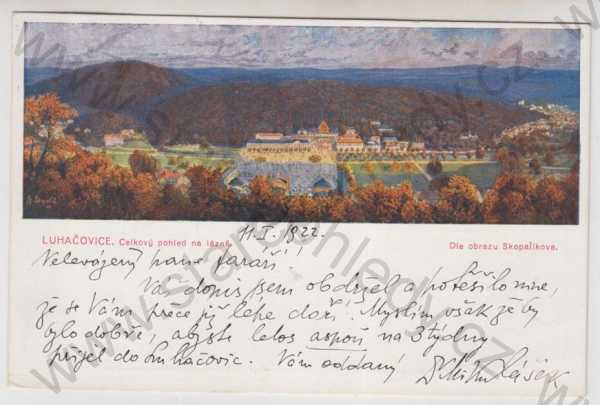 LUHAČOVICE. Celkový pohled na lázně.
Dle obrazu Skopalíkova.
11.I.1922.
Velevážený pane faráři!
Váš dopis jsem obdržel a potěšilo mne,
že se Vám přece již lépe daří. Myslím však že by
bylo dobře, abyste letos aspoň na 3 týdny
přijel do Luhačovic. Vám oddaný
www.starepohledy.cz